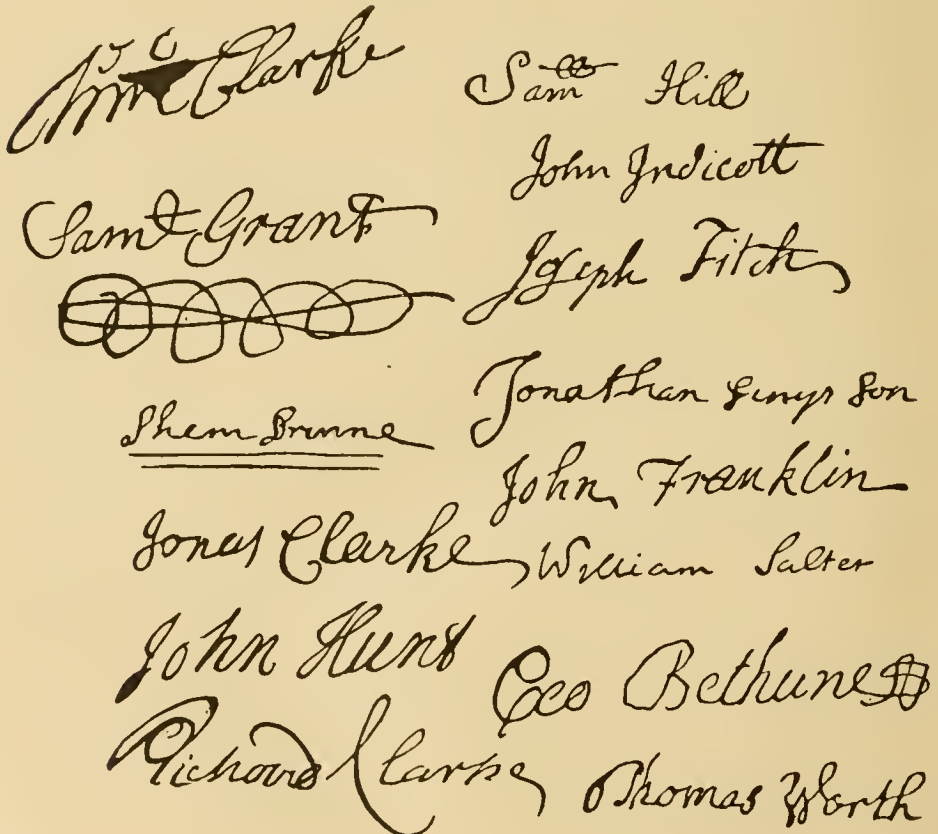 Clarke
Saml Grant
Jonas Clarke
John Hunt
Richard Clarke
Saml Hill
John Indicott
Joseph Fitch
Jonathan
John Franklin
William Salter
Geo Bethune
Thomas Warth